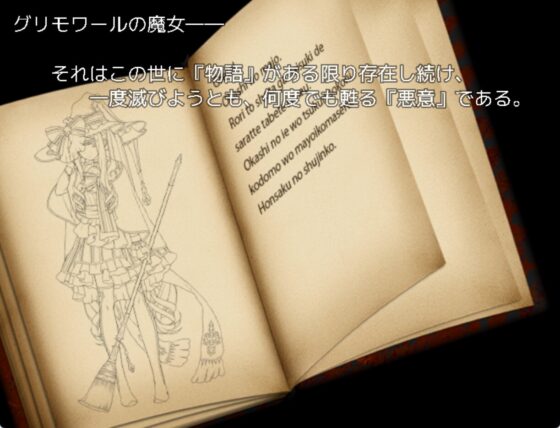 グリモワールの魔女――
それはこの世に『物語』がある限り存在し続け、
一度滅びようとも、何度でも甦る『悪意』である。
saratte tabete
Okashi no ie wo
kodomo wo mayoikomase
Honsaku no shujinko.